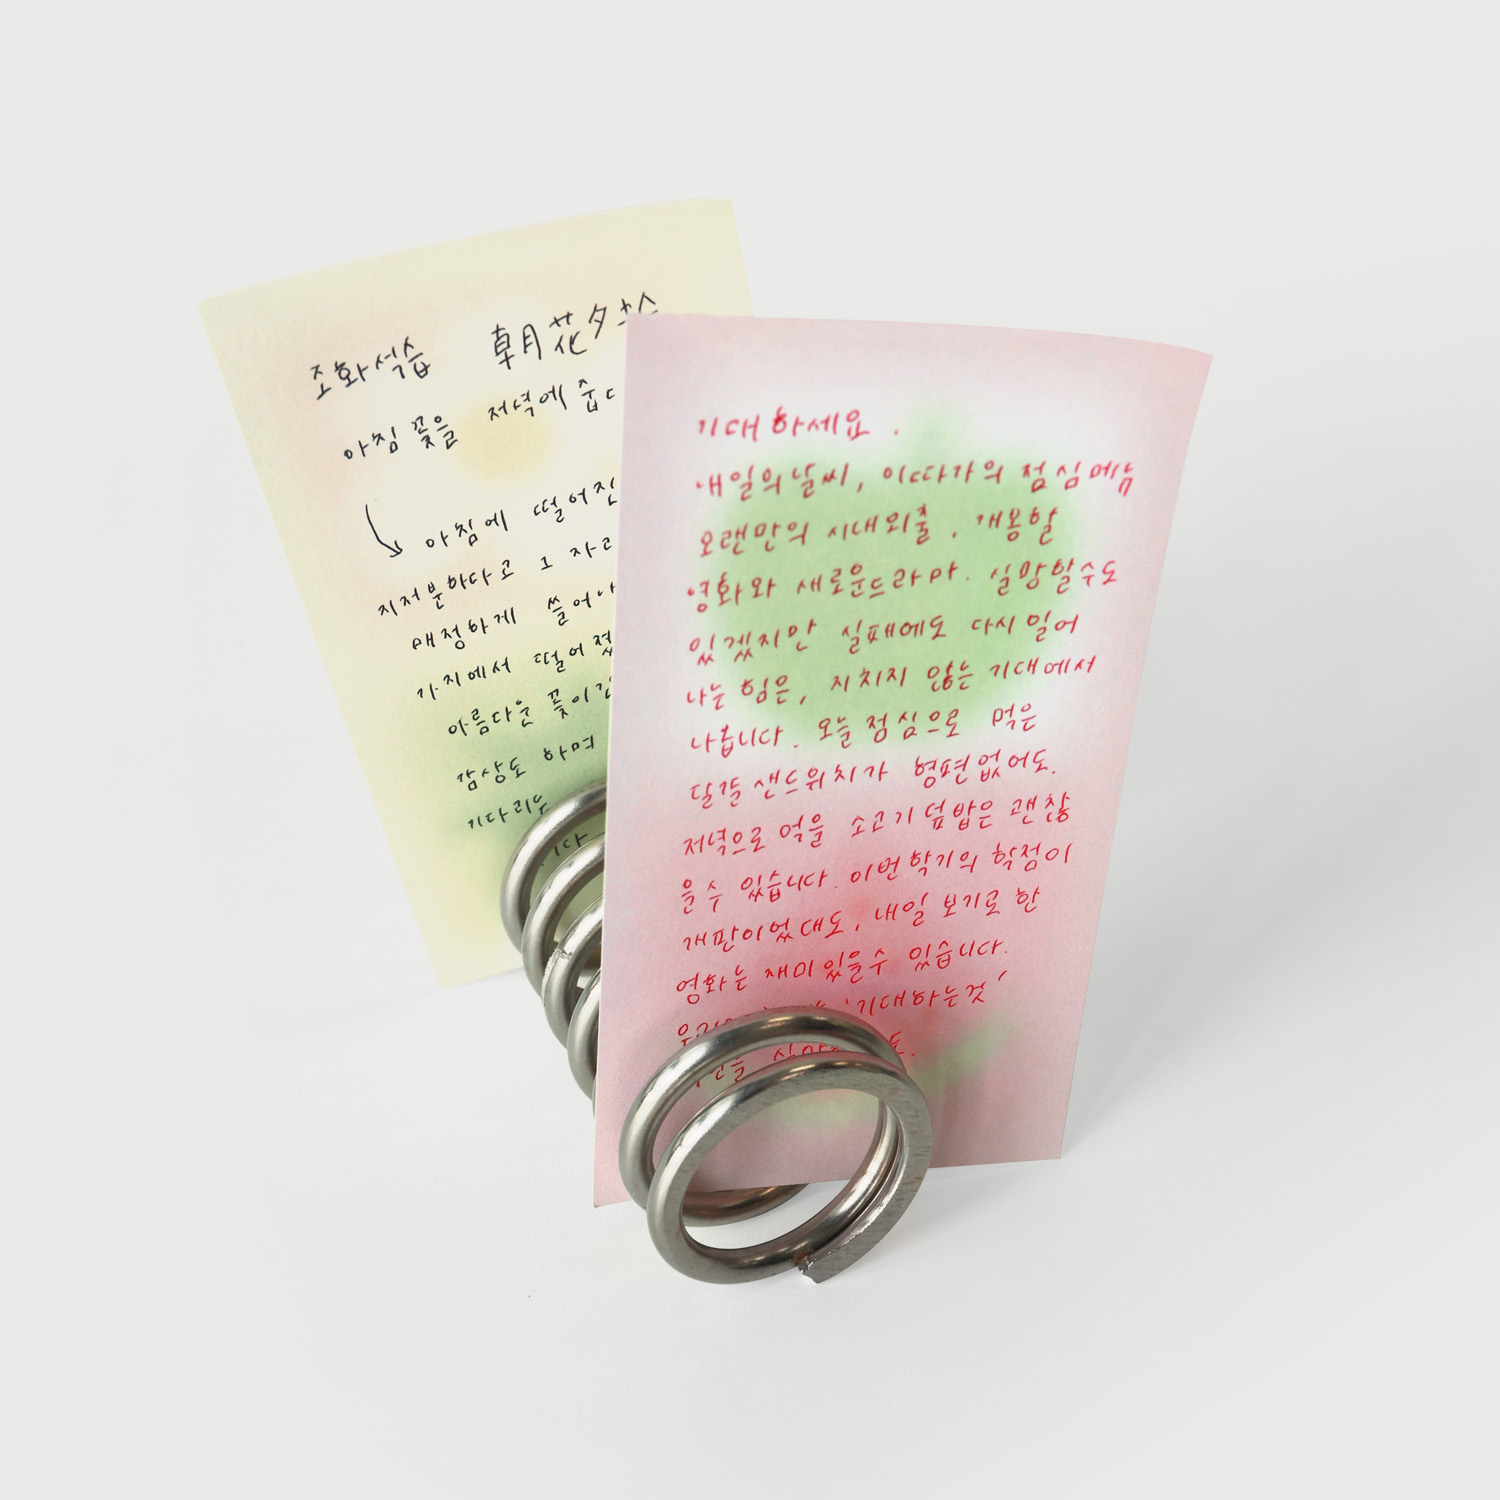 조화석습 朝花夕拾
아침 꽃을 저녁에 줍
아침에 떨어진
지저분하다고 그 자리
매정하게 쓸어
가지에서 떨어졌
아름다운 꽃이
감상도 하며
기다리는
기대하세요.
내일의 날씨, 이따가의 점심메뉴
오랜만의 시내외출. 개봉할
영화와 새로운드라마. 실망할수도
있겠지만 실패에도 다시 일어
나는 힘은, 지치지 않는 기대에서
나옵니다. 오늘 점심으로 먹은
달걀 샌드위치가 형편없어도.
저녁으로 먹을 소고기 덮밥은 괜찮
을수 있습니다. 이번학기의 학점이
개판이었대도, 내일 보기로 한
영화는 재미있을수 있습니다.
'기대하는것'